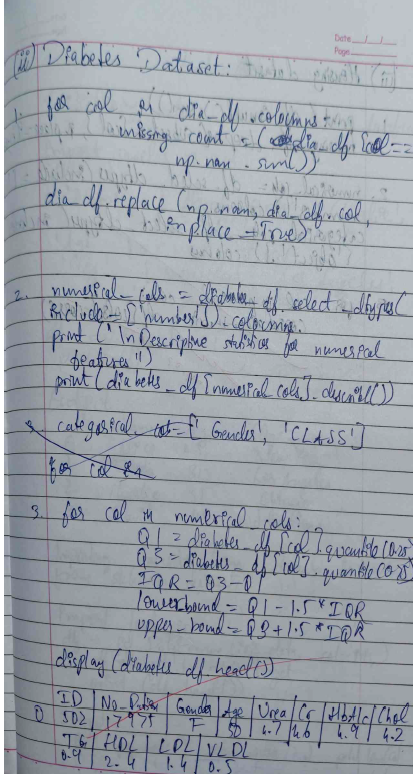 Date __/__/__
Page
(ii) Diabetes Dataset:
1. for col in dia_df.coloumns:
missing_count = (dia_df[col == 2
np.nan.sum())
dia_df.replace(np.nan, dia_df.col,
inplace = True)
2. numerical_cols. = diabetes_df select_dtypes(
include = ['number']).coloumns.
print ("\nDescriptive statistics for numerical
features")
print (diabetes_df [numerical cols.].describe())
categorical = ['Gender', 'CLASS']
for col
3. for col in numerical_cols:
Q1 = diabetes_df[col].quantile(0.25)
Q3 = diabetes_df[col].quantile(0.25)
IQR = Q3-Q1
lowerbound = Q1 - 1.5 * IQR
upper-bound = Q3 + 1.5 * IQR
display (diabetes df head())
ID | No_ | Gender | Age | Urea | Cr | HbA1c | Chol
0 502 | 17975 | F | 50 | 4.7 | 46 | 4.9 | 4.2
TG | HDL | LDL | VLDL
0.9 | 2.4 | 1.4 | 0.5